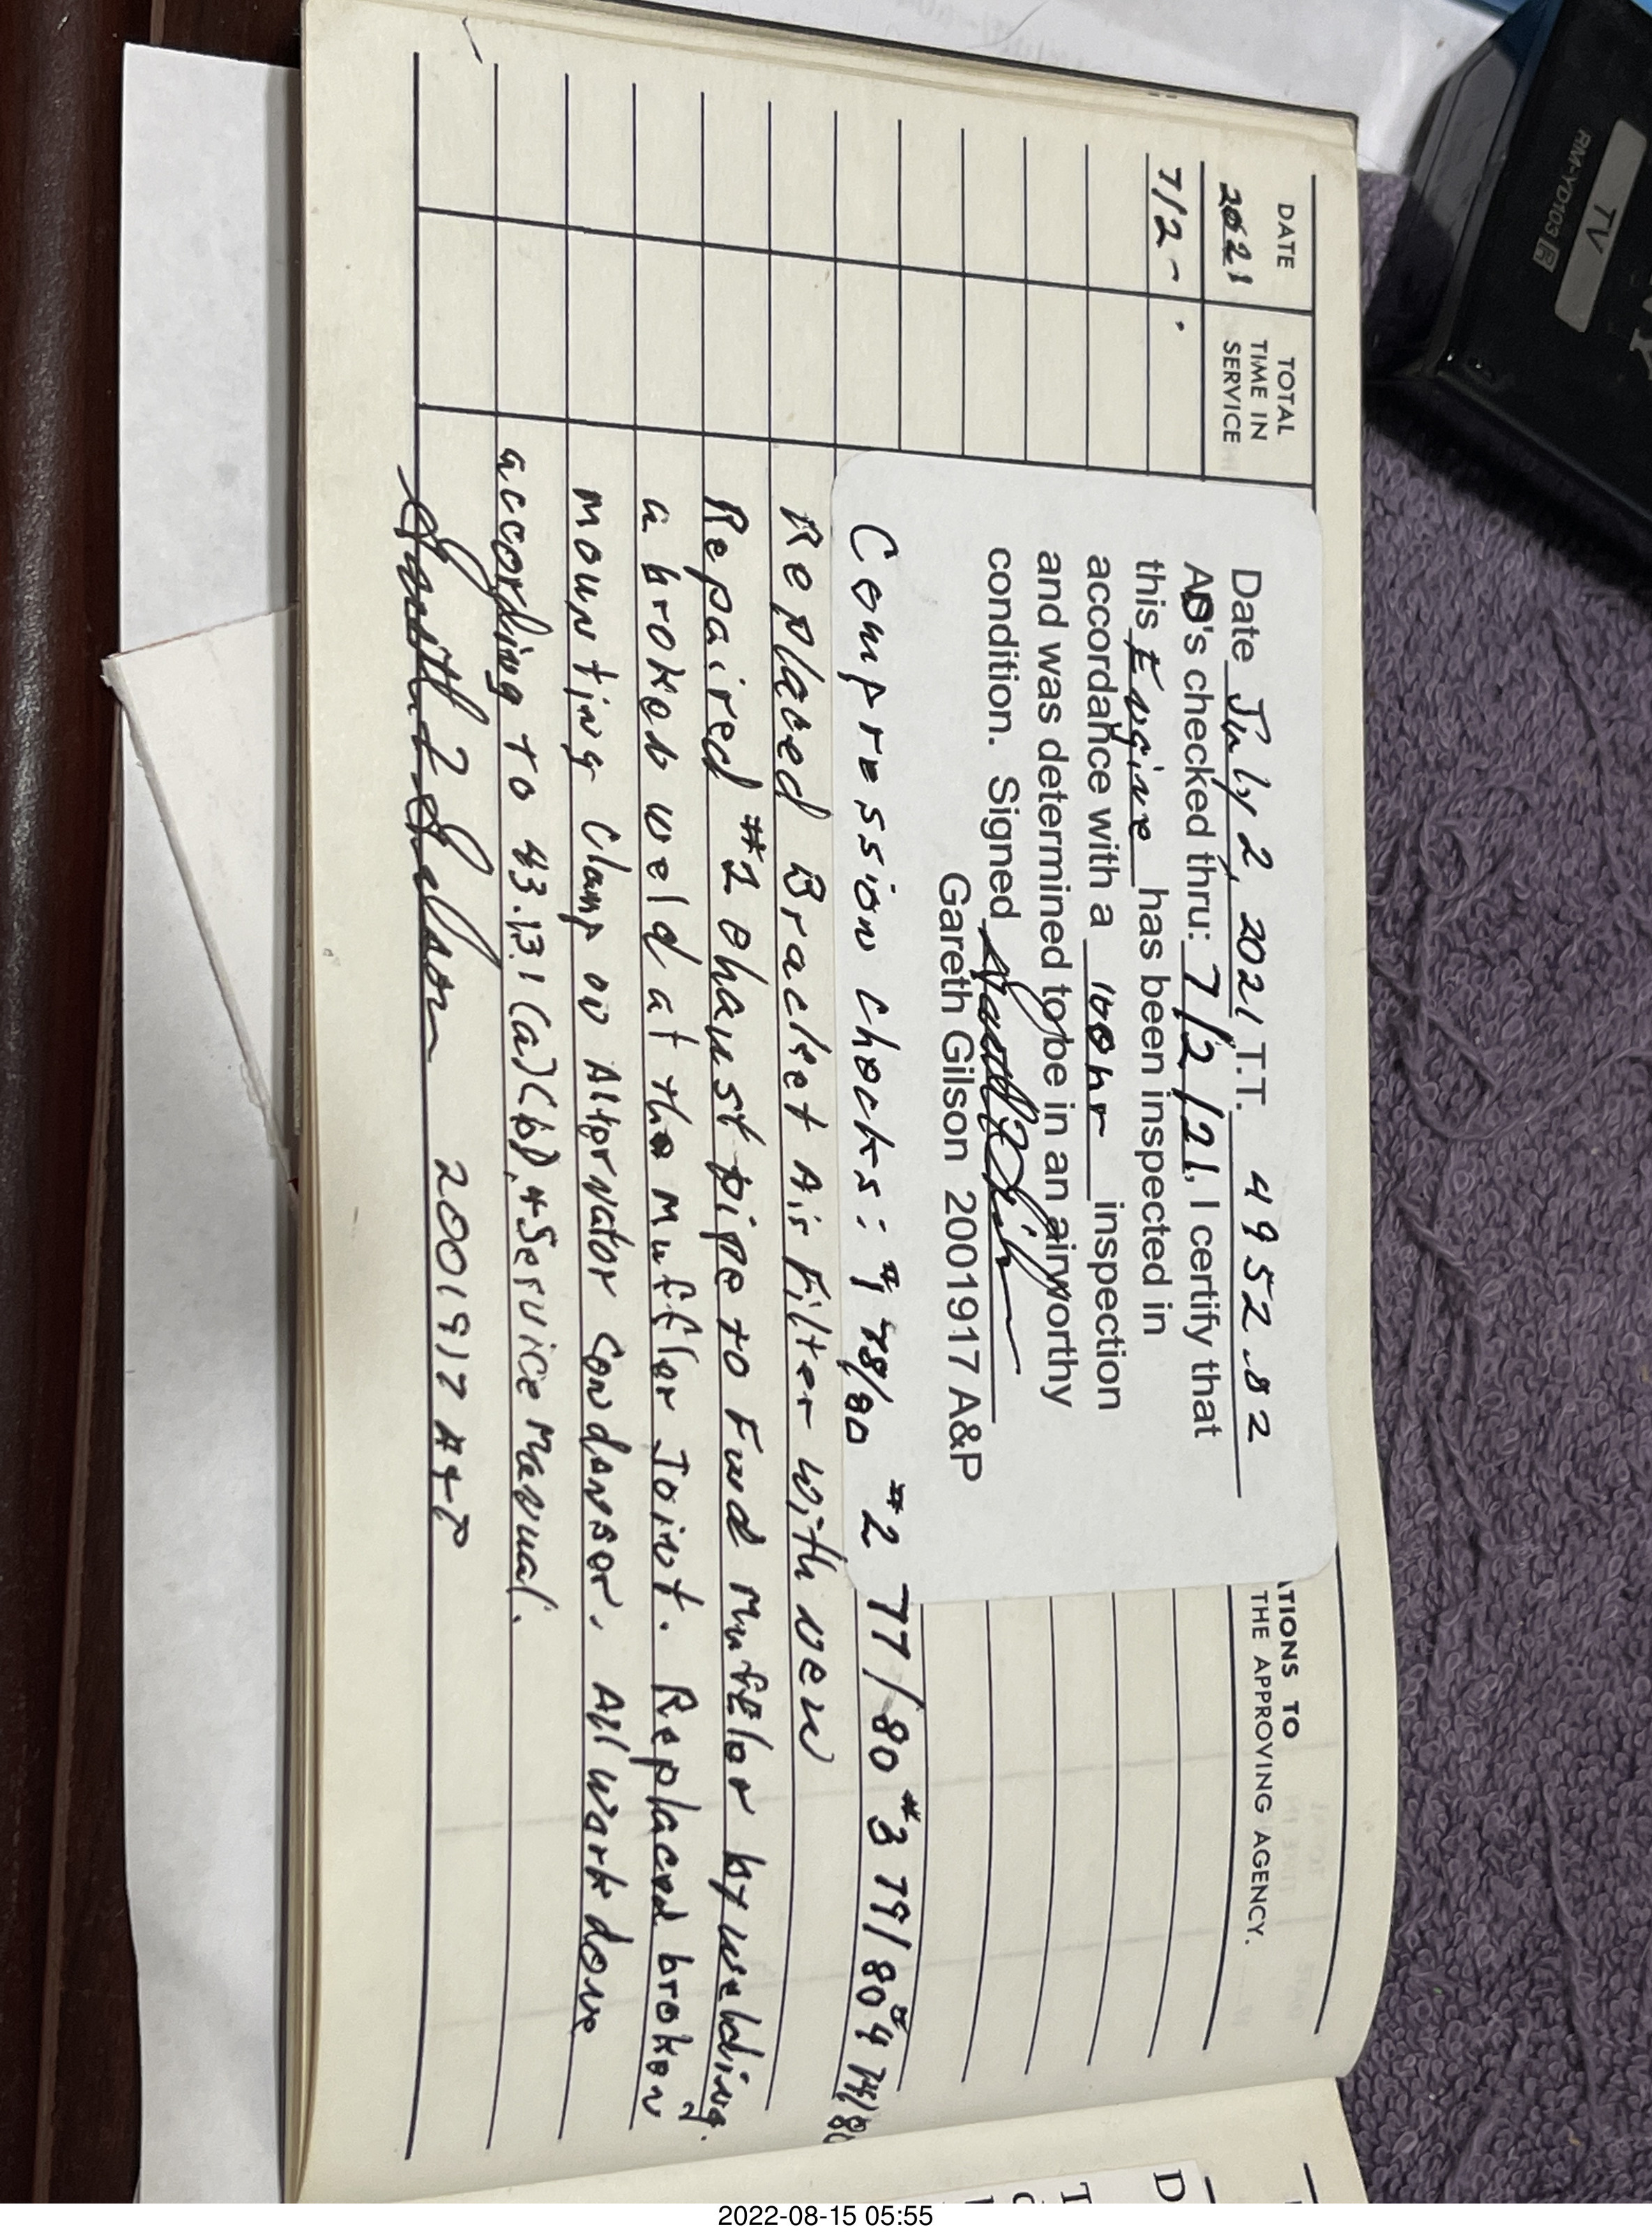 DATE
TOTAL
TIME IN
SERVICE
ATIONS TO
THE APPROVING AGENCY.
2021
7/2-
Date July 2, 2021 T.T. 4952.82
AD's checked thru: 7/2/21, I certify that
this Engine has been inspected in
accordance with a 100hr inspection
and was determined to be in an airworthy
condition. Signed
Gareth Gilson 2001917 A&P
Compression checks: #1 78/80 #2 77/80 #3 79/80 #4
Replaced Bracket Air Filter with new
Repaired #2 Ehaust pipe to Fwd Muffler by welding.
a broken weld at the Muffler Joint. Replaced broken
mounting Clamp on Alternator Condenser. All work done
according to 43.13.1 (a)(b), + Service Manual.
2001917 A+P
TV
RM-YD103
R
D
T
2022-08-15 05:55